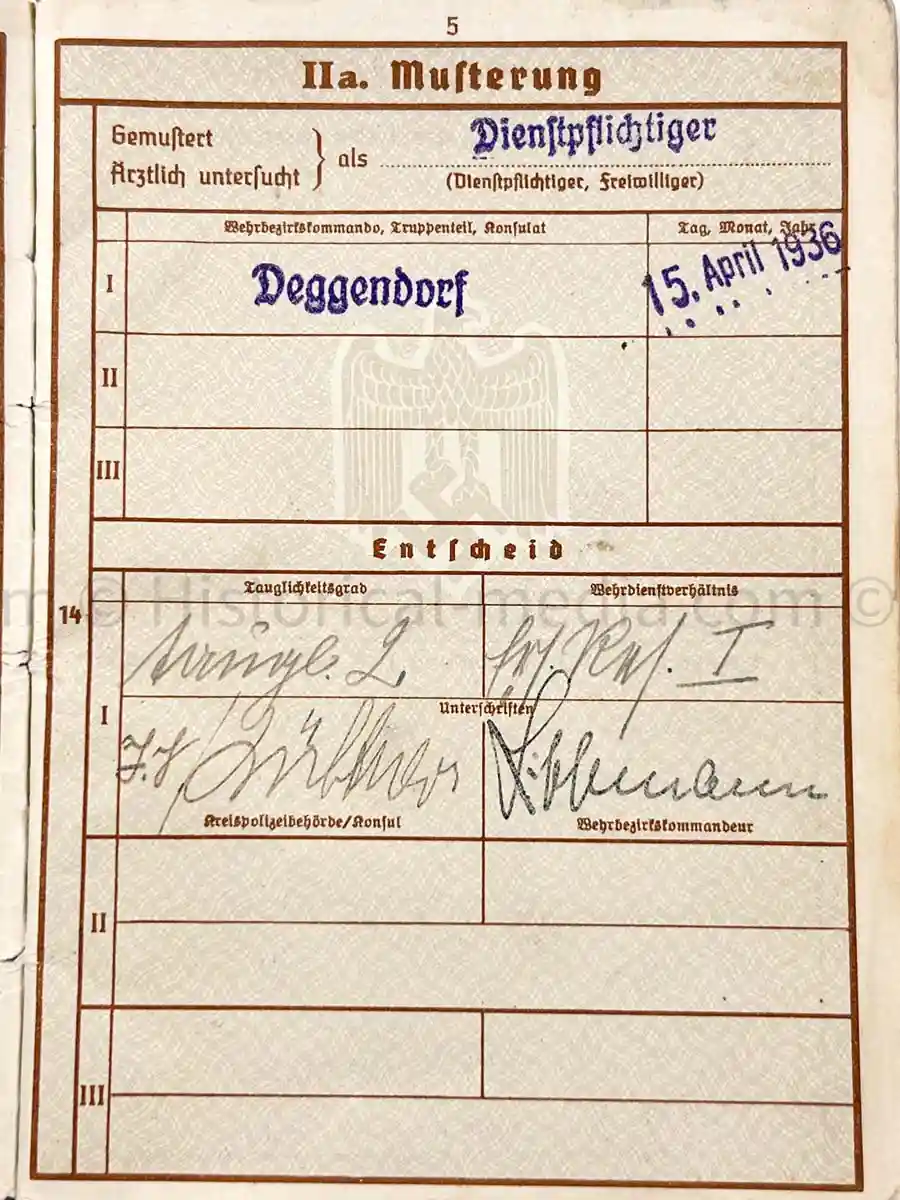 5
IIa. Muſterung
Gemuſtert
Ärztlich unterſucht } als Dienſtpflichtiger
(Dienſtpflichtiger, Freiwilliger)
Wehrbezirkskommando, Truppenteil, Konſulat Tag, Monat, Jahr
I Deggendorf 15. April 1936
II
III
Entſcheid
Tauglichkeitsgrad Wehrdienſtverhältnis
© Historical-media.com ©
14
taugl. 2 Erſ. Reſ. I
I
Unterſchriften
Kreispolizeibehörde/Konſul Wehrbezirkskommandeur
II
III